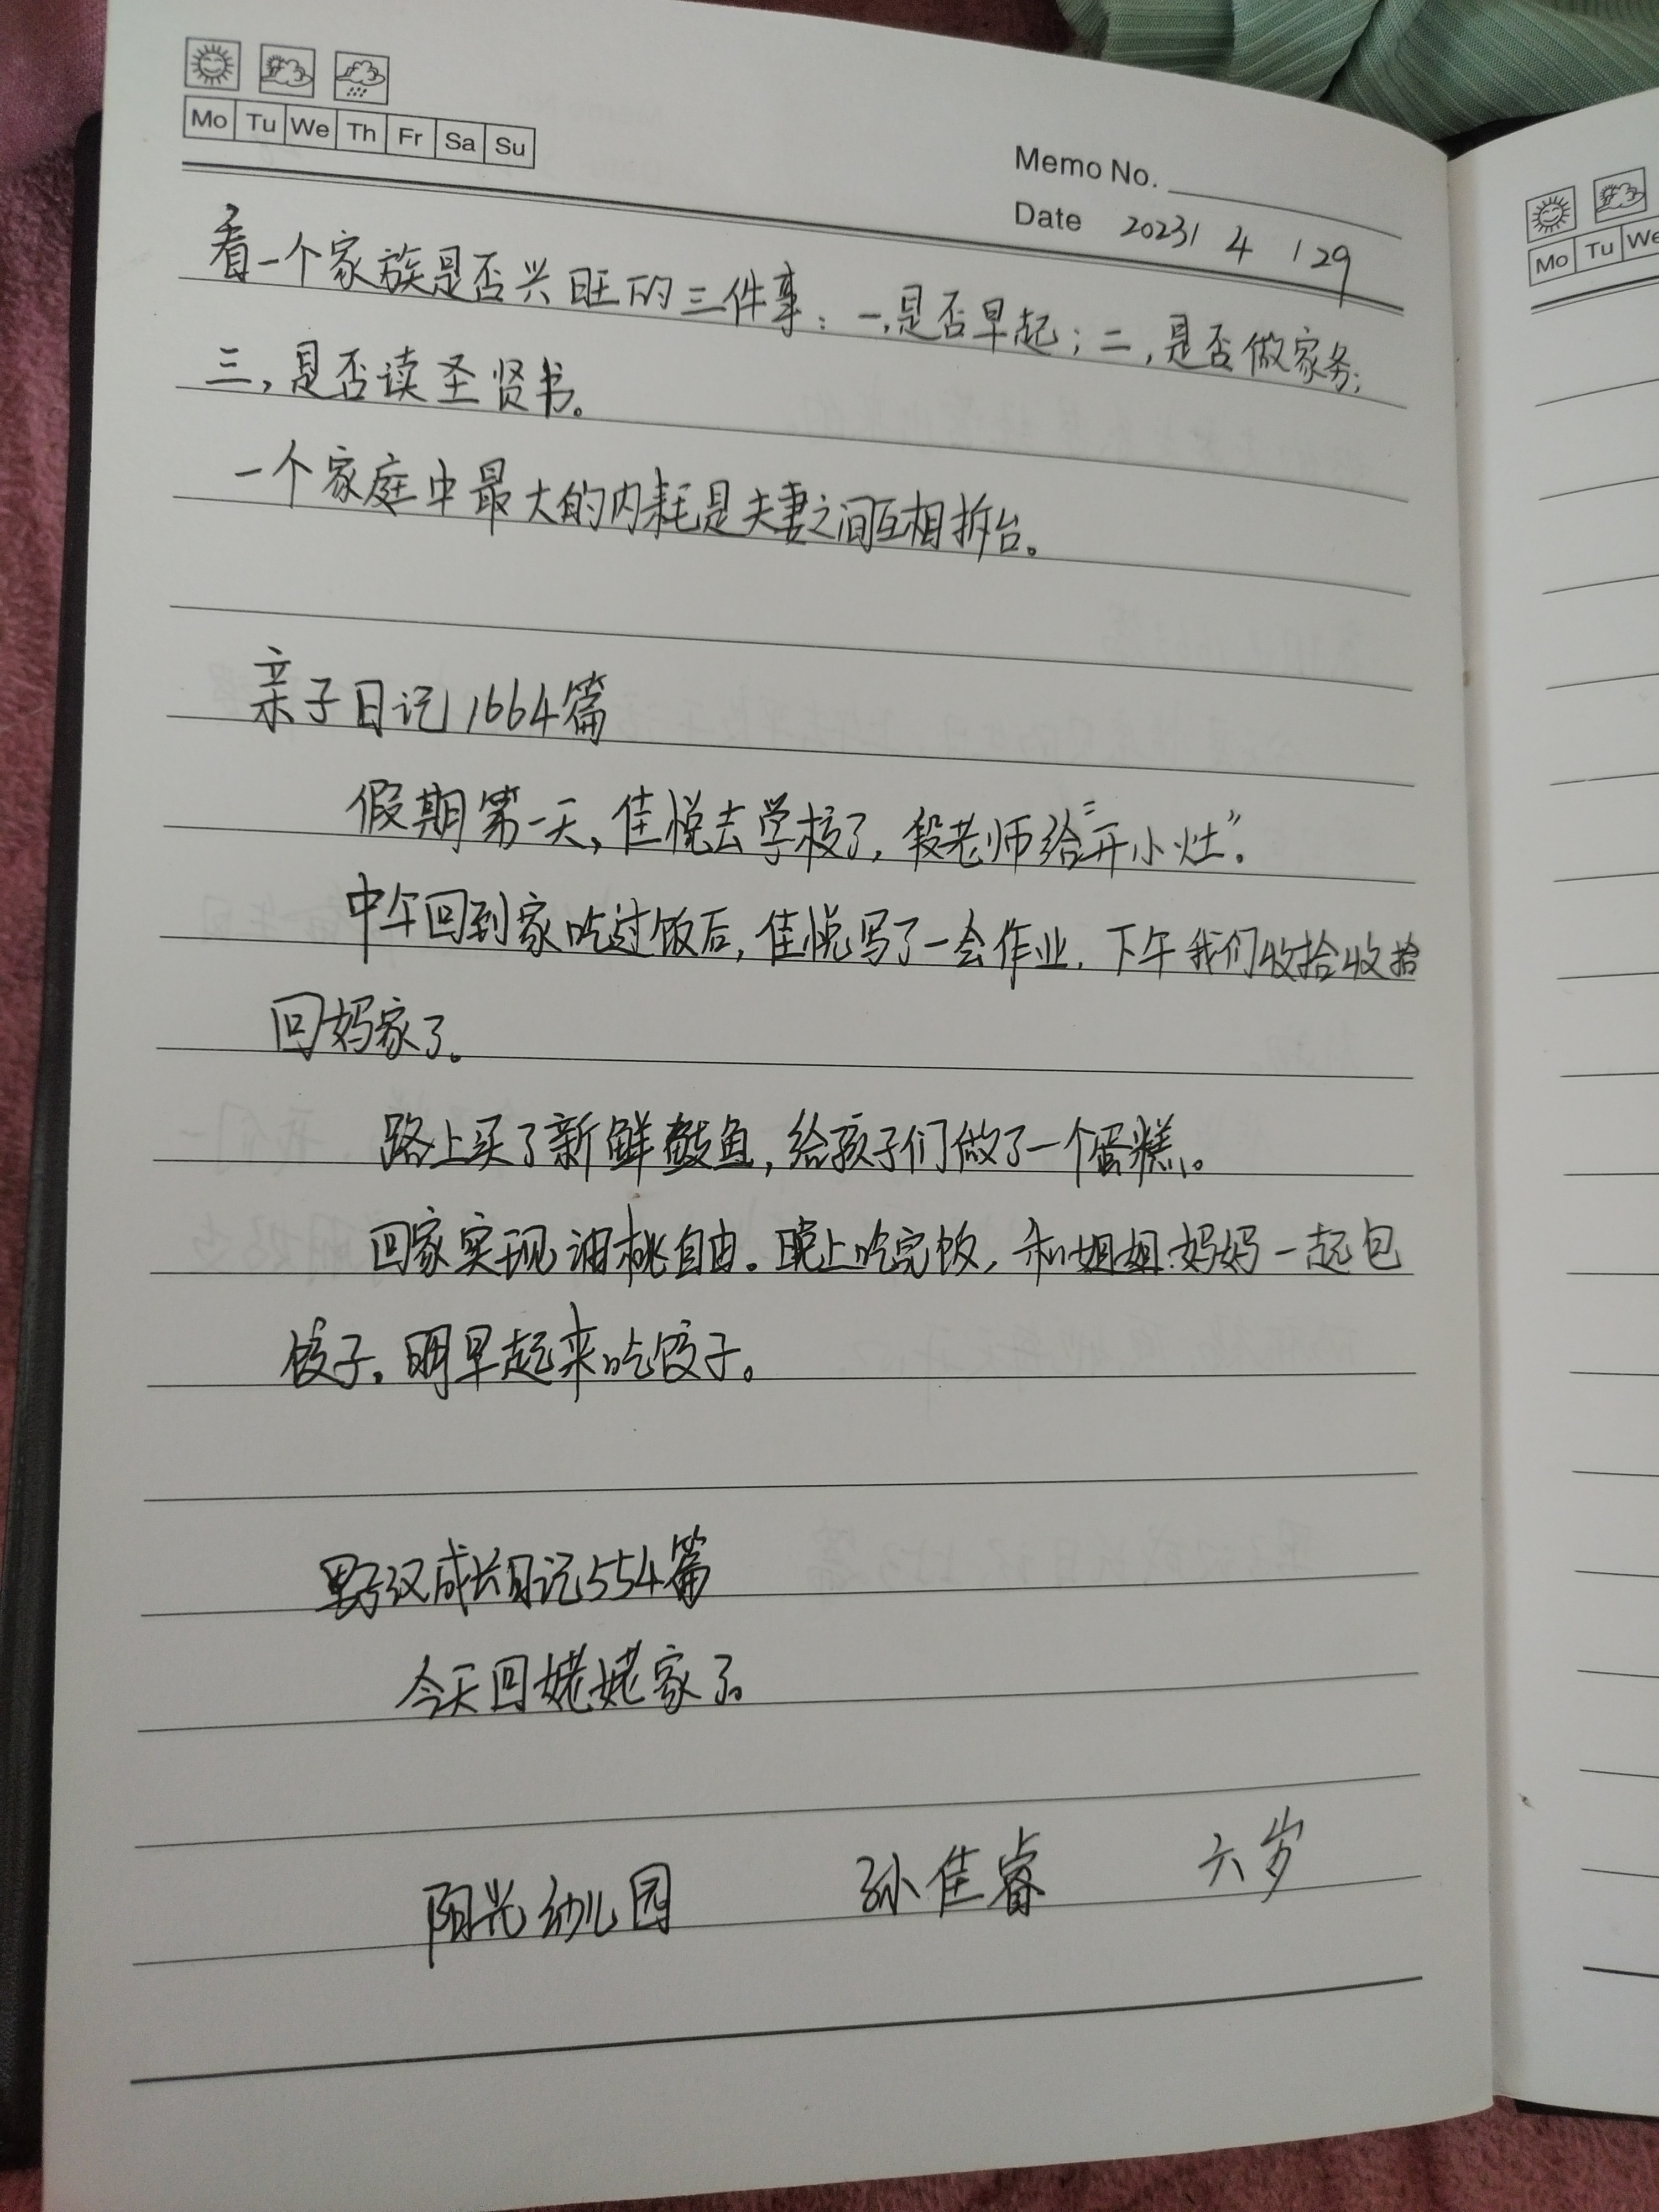 Mo Tu We Th Fr Sa Su
Memo No.
Date 2023/ 4 /29
看一个家族是否兴旺的三件事：一，是否早起；二，是否做家务；
三，是否读圣贤书。
一个家庭中最大的内耗是夫妻之间互相拆台。
亲子日记1664篇
假期第一天，佳悦去学校了，殷老师给“开小灶”。
中午回到家吃过饭后，佳悦写了一会作业，下午我们收拾收拾
回妈家了。
路上买了新鲜鲅鱼，给孩子们做了一个蛋糕。
回家实现油桃自由。晚上吃完饭，和姐姐、妈妈一起包
饺子。明早起来吃饺子。
男子汉成长日记554篇
今天回姥姥家了。
阳光幼儿园 孙佳睿 六岁
Mo Tu We